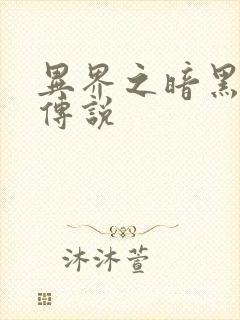 異界之暗黑
傳說
沐沐萱